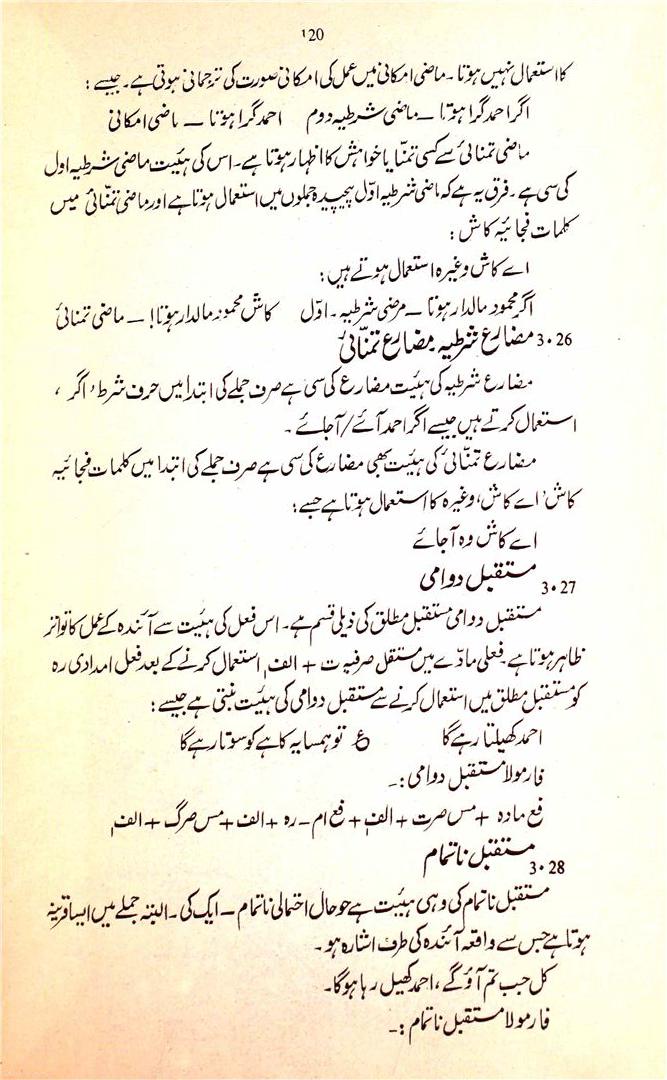 120
کا استعمال نہیں ہوتا۔ ماضی امکانی میں عمل کی امکانی صورت کی ترجمانی ہوتی ہے۔ جیسے :
اگر احمد گرا ہوتا — ماضی شرطیہ دوم احمد گرا ہوتا — ماضی امکانی
ماضی تمنائی سے کسی تمنّا یا خواہش کا اظہار ہوتا ہے۔ اس کی ہیئت ماضی شرطیہ اول
کی سی ہے۔ فرق یہ ہے کہ ماضی شرطیہ اوّل پیچیدہ جملوں میں استعمال ہوتا ہے اور ماضی تمنّائی میں
کلمات فجائیہ کاش :
اے کاش وغیرہ استعمال ہوتے ہیں :
اگر محمود مالدار ہوتا — مرضی شرطیہ ۔ اوّل کاش محمود مالدار ہوتا! — ماضی تمنائی
3.26 مضارع شرطیہ مضارع تمنّائی
مضارع شرطیہ کی ہیئت مضارع کی سی ہے صرف جملے کی ابتدا میں حرف شرط ' اگر '
استعمال کرتے ہیں جیسے اگر احمد آئے/آجائے ۔
مضارع تمنّائی کی ہیئت بھی مضارع کی سی ہے صرف جملے کی ابتدا میں کلمات فجائیہ
کاش' اے کاش، وغیرہ کا استعمال ہوتا ہے جیسے :
اے کاش وہ آجائے
3.27 مستقبل دوامی
مستقبل دوامی مستقبل مطلق کی ذیلی قسم ہے۔ اس فعل کی ہیئت سے آئندہ کے عمل کا تواتر
ظاہر ہوتا ہے۔ فعلی مادّے میں مستقل صرفیہ ت + الف استعمال کرنے کے بعد فعل امدادی رہ
کو مستقبل مطلق میں استعمال کرنے سے مستقبل دوامی کی ہیئت بنتی ہے جیسے :
احمد کھیلتا رہے گا ع تو ہمسایہ کاہے کو سوتا رہے گا
فارمولا مستقبل دوامی :۔
فع مادہ + مس صرت + الف + فع ام - رہ + الف + مس صرگ + الف
3.28 مستقبل ناتمام
مستقبل ناتمام کی وہی ہیئت ہے جو حال احتمالی ناتمام — ایک کی ۔ البتہ جملے میں ایسا قرینہ
ہوتا ہے جس سے واقعہ آئندہ کی طرف اشارہ ہو ۔
کل جب تم آؤ گے ، احمد کھیل رہا ہوگا۔
فارمولا مستقبل ناتمام :۔